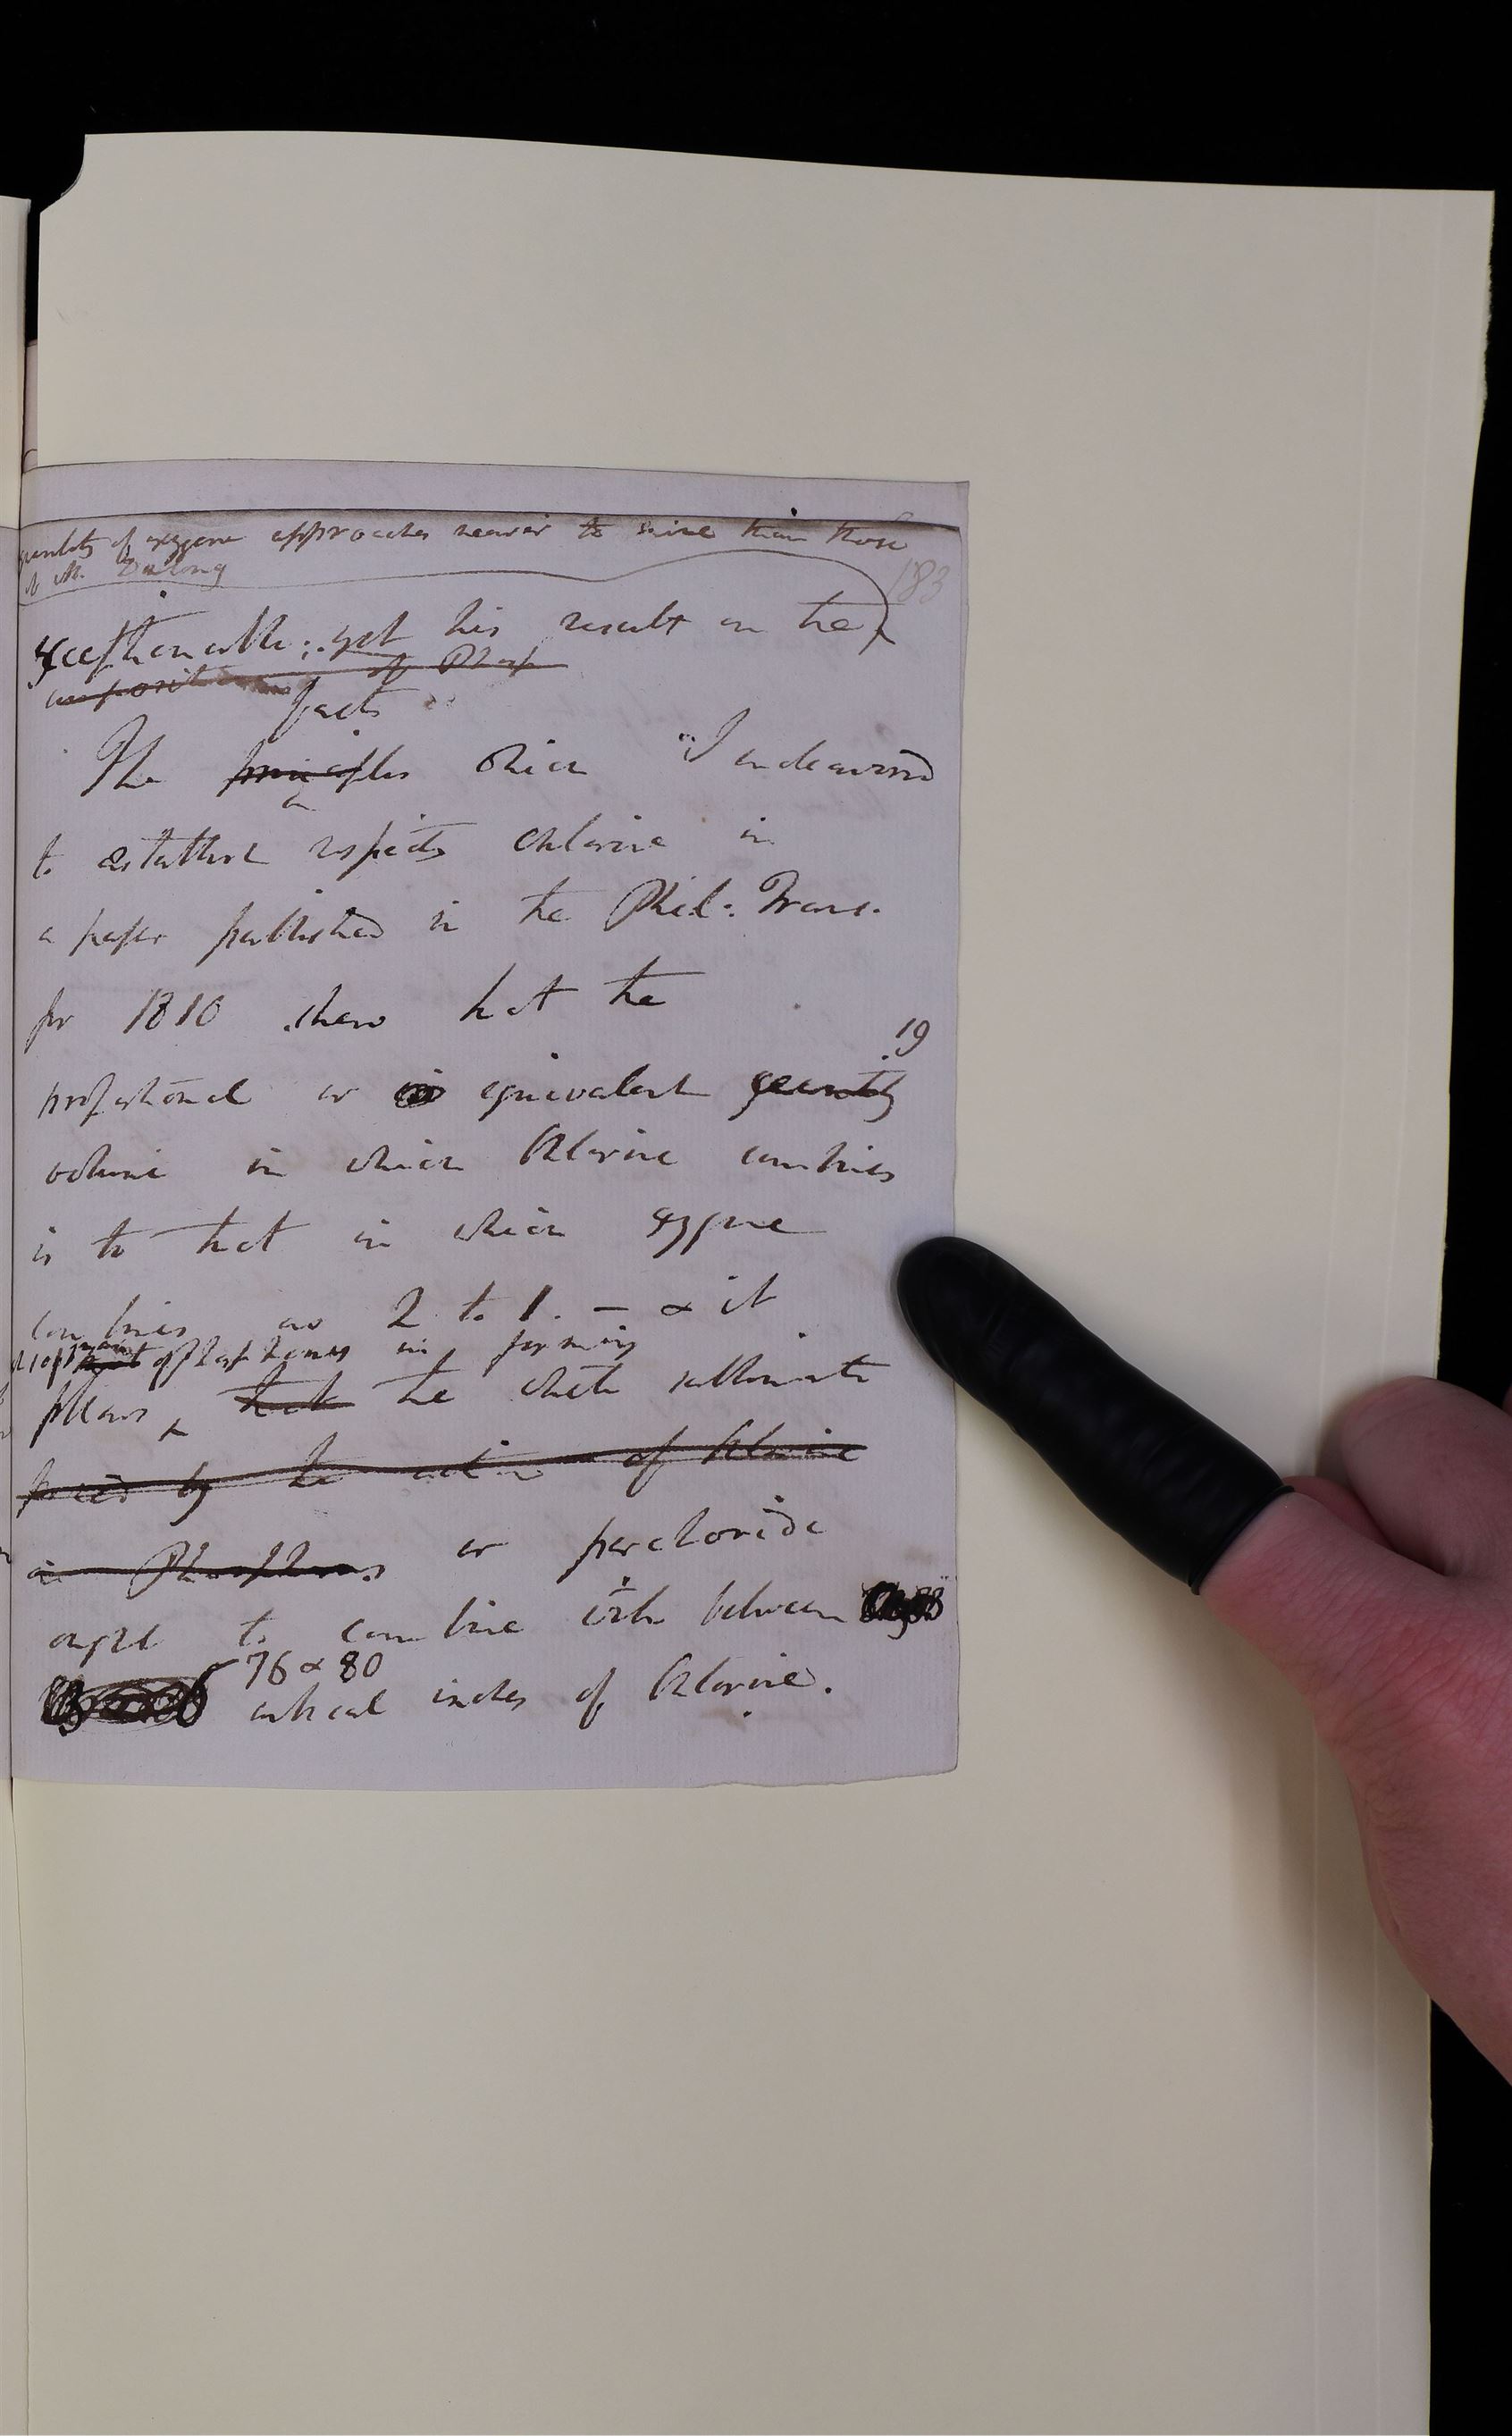 quantity of oxygene approaches nearer to mine than those
of M. Dulong
183
exceptionable; yet his result on the
composition of Phosp
facts
The principles which I endeavored
to establish respects chlorine in
a paper published in the Phil: Trans.
for 1810 shew that the
19
proportional or equivalent quantity
volume in which Chlorine combines
is to that in which oxygene
combines as 2 to 1. — & it
of phosphorus in forming
follows that the white sublimate
formed by the action of Chlorine
on Phosphorus or perchloride
ought to combine with between
76 & 80
cubical inches of Chlorine.